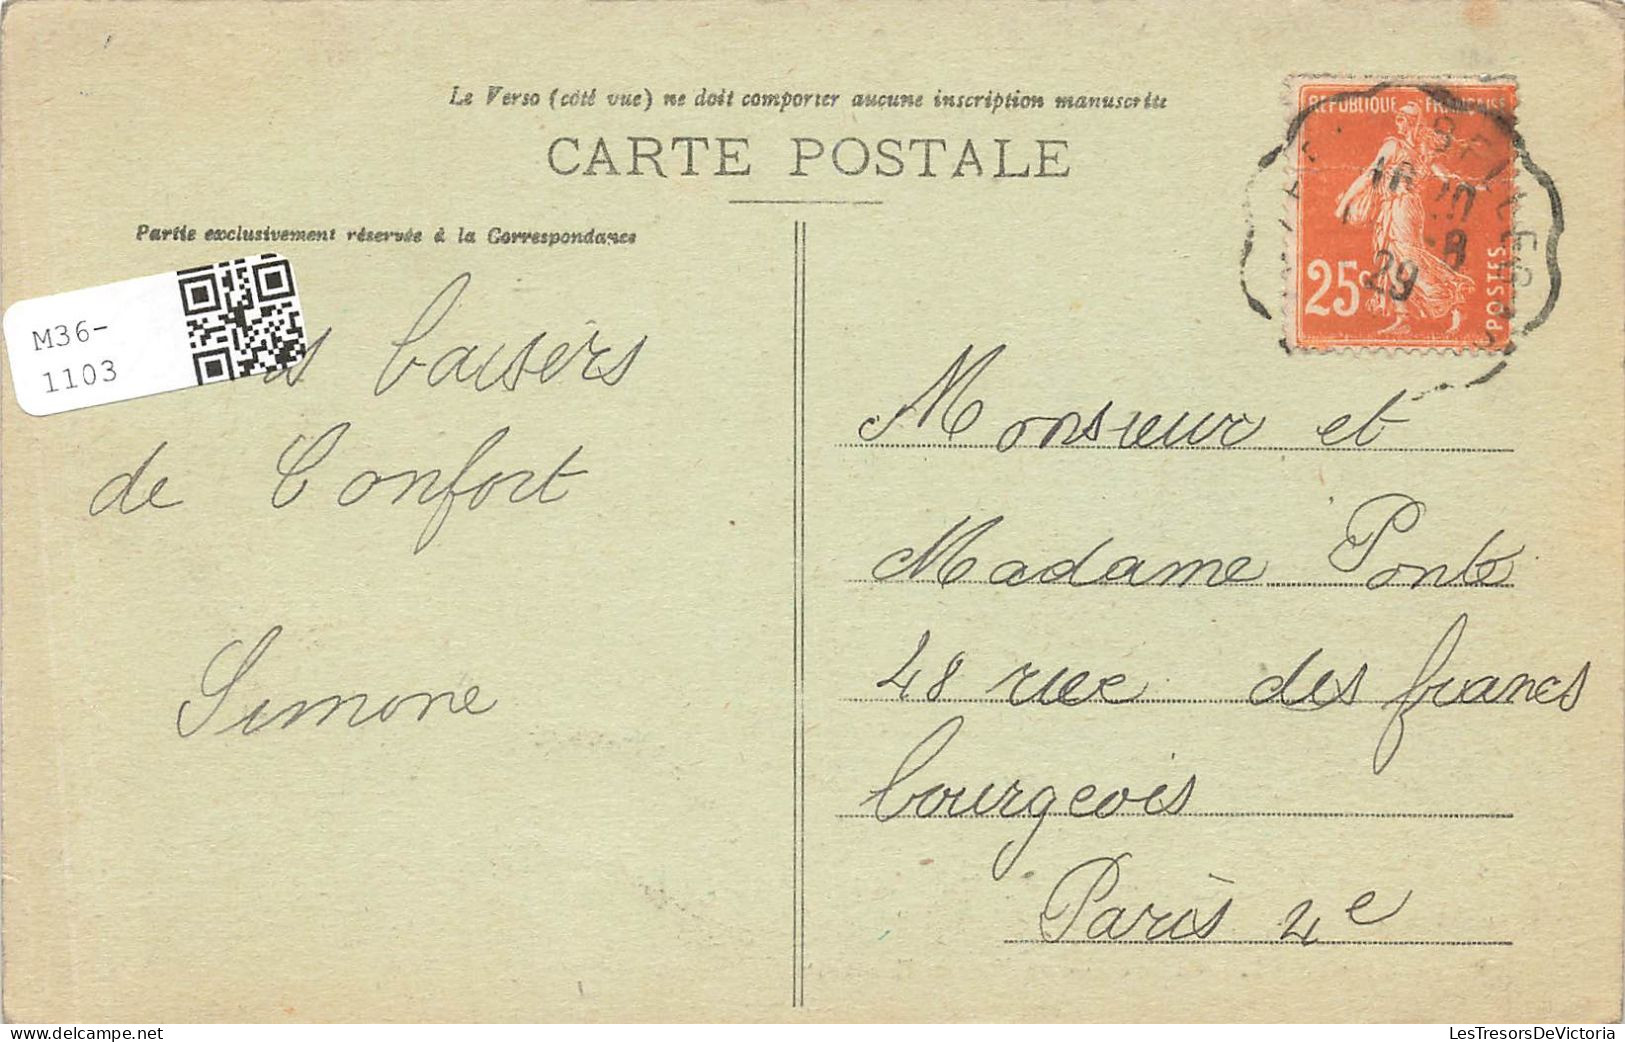 Le Verso (côté vue) ne doit comporter aucune inscription manuscrite
CARTE POSTALE
Partie exclusivement réservée à la Correspondance
M36-
1103
baisers
de Confort
Simone
REPUBLIQUE FRANÇAISE
25c
POSTES
29
Monsieur et
Madame Ponte
48 rue des francs
bourgeois
Paris 4e
LesTresorsDeVictoria
delcampe.net